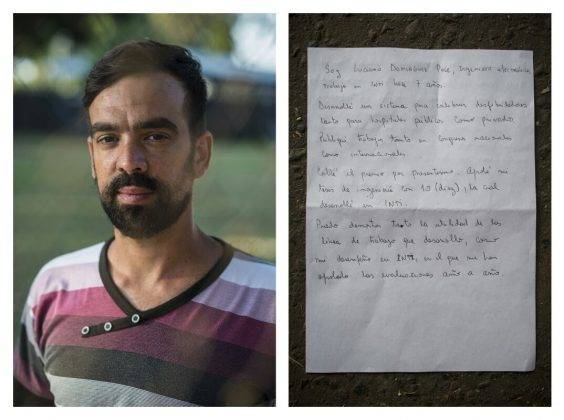 Soy Luciano Dominguez Pose, Ingeniero electrónico,
trabajo en INTI hace 7 años.
Desarrollé un sistema para calibrar desfibriladores
tanto para hospitales públicos como privados
Publiqué trabajos tanto en congresos nacionales
como internacionales
Cobré el premio por presentismo. Aprobé mi
tesis de ingeniería con 10 (diez), la cual
desarrollé en INTI.
Puedo demostrar tanto la utilidad de las
línea de trabajo que desarrollo, como
mi desempeño en INTI, en el que me han
aprobado las evaluaciones año a año.